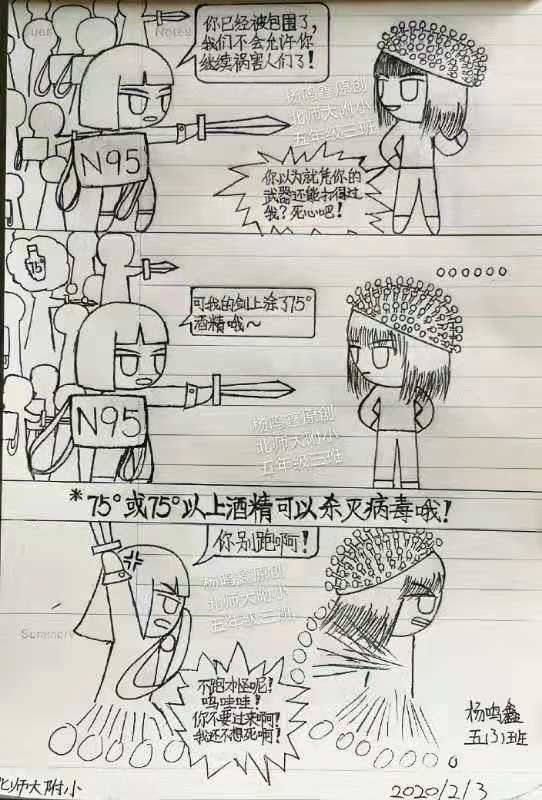 Cues
Notes
你已经被包围了，
我们不会允许你
继续祸害人们了！
杨鸣鑫原创
北师大附小
五年级三班
N95
你以为就凭你的
武器还能打得过
我？死心吧！
75°
可我的剑上涂了75°
酒精哦～
N95
杨鸣鑫原创
北师大附小
五年级三班
*75°或75°以上酒精可以杀灭病毒哦！
你别跑啊！
杨鸣鑫原创
北师大附小
五年级三班
Summary
不跑才怪呢！
呜哇哇！
你不要过来啊！
我还不想死啊！
杨鸣鑫
五(3)班
北师大附小
2020/2/3